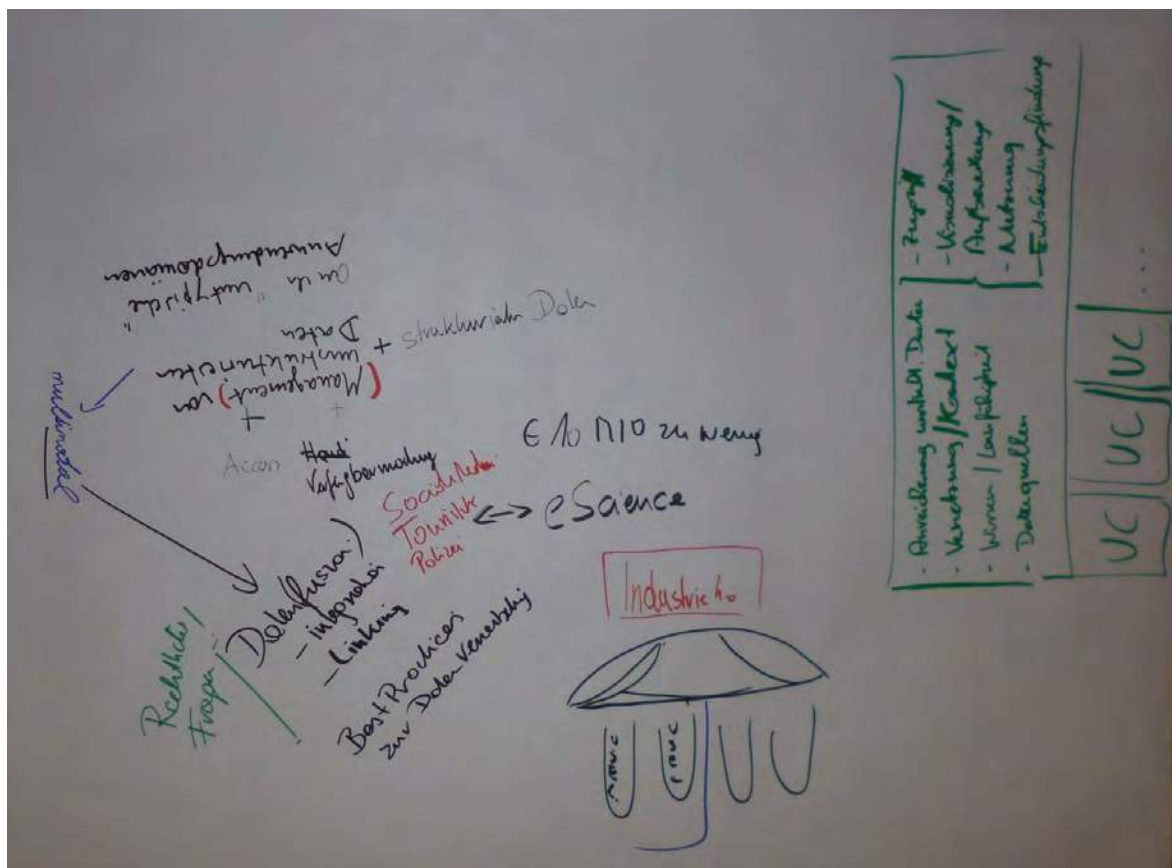 auch "untypische"
Anwendungsdomänen
multimodal
(Management) von
unstrukturierten
Daten
+ strukturierten Daten
+
+
Access
Verfügbarmachung
€ 10 MIO zu wenig
Social Media
Touristik
Polizei
↔ eScience
Datenfusion
- integration
- Linking
Rechtliche
Fragen
Best Practices
zur Daten Vernetzung
Industrie 4.0
- Anreicherung unstrukt. Daten
- Vernetzung / Kontext
- Wissen / Lernfähigkeit
- Datenquellen
- Zugriff
- Visualisierung /
Aufbereitung
- Nutzung
- Entscheidungsfindung
UC UC UC ...